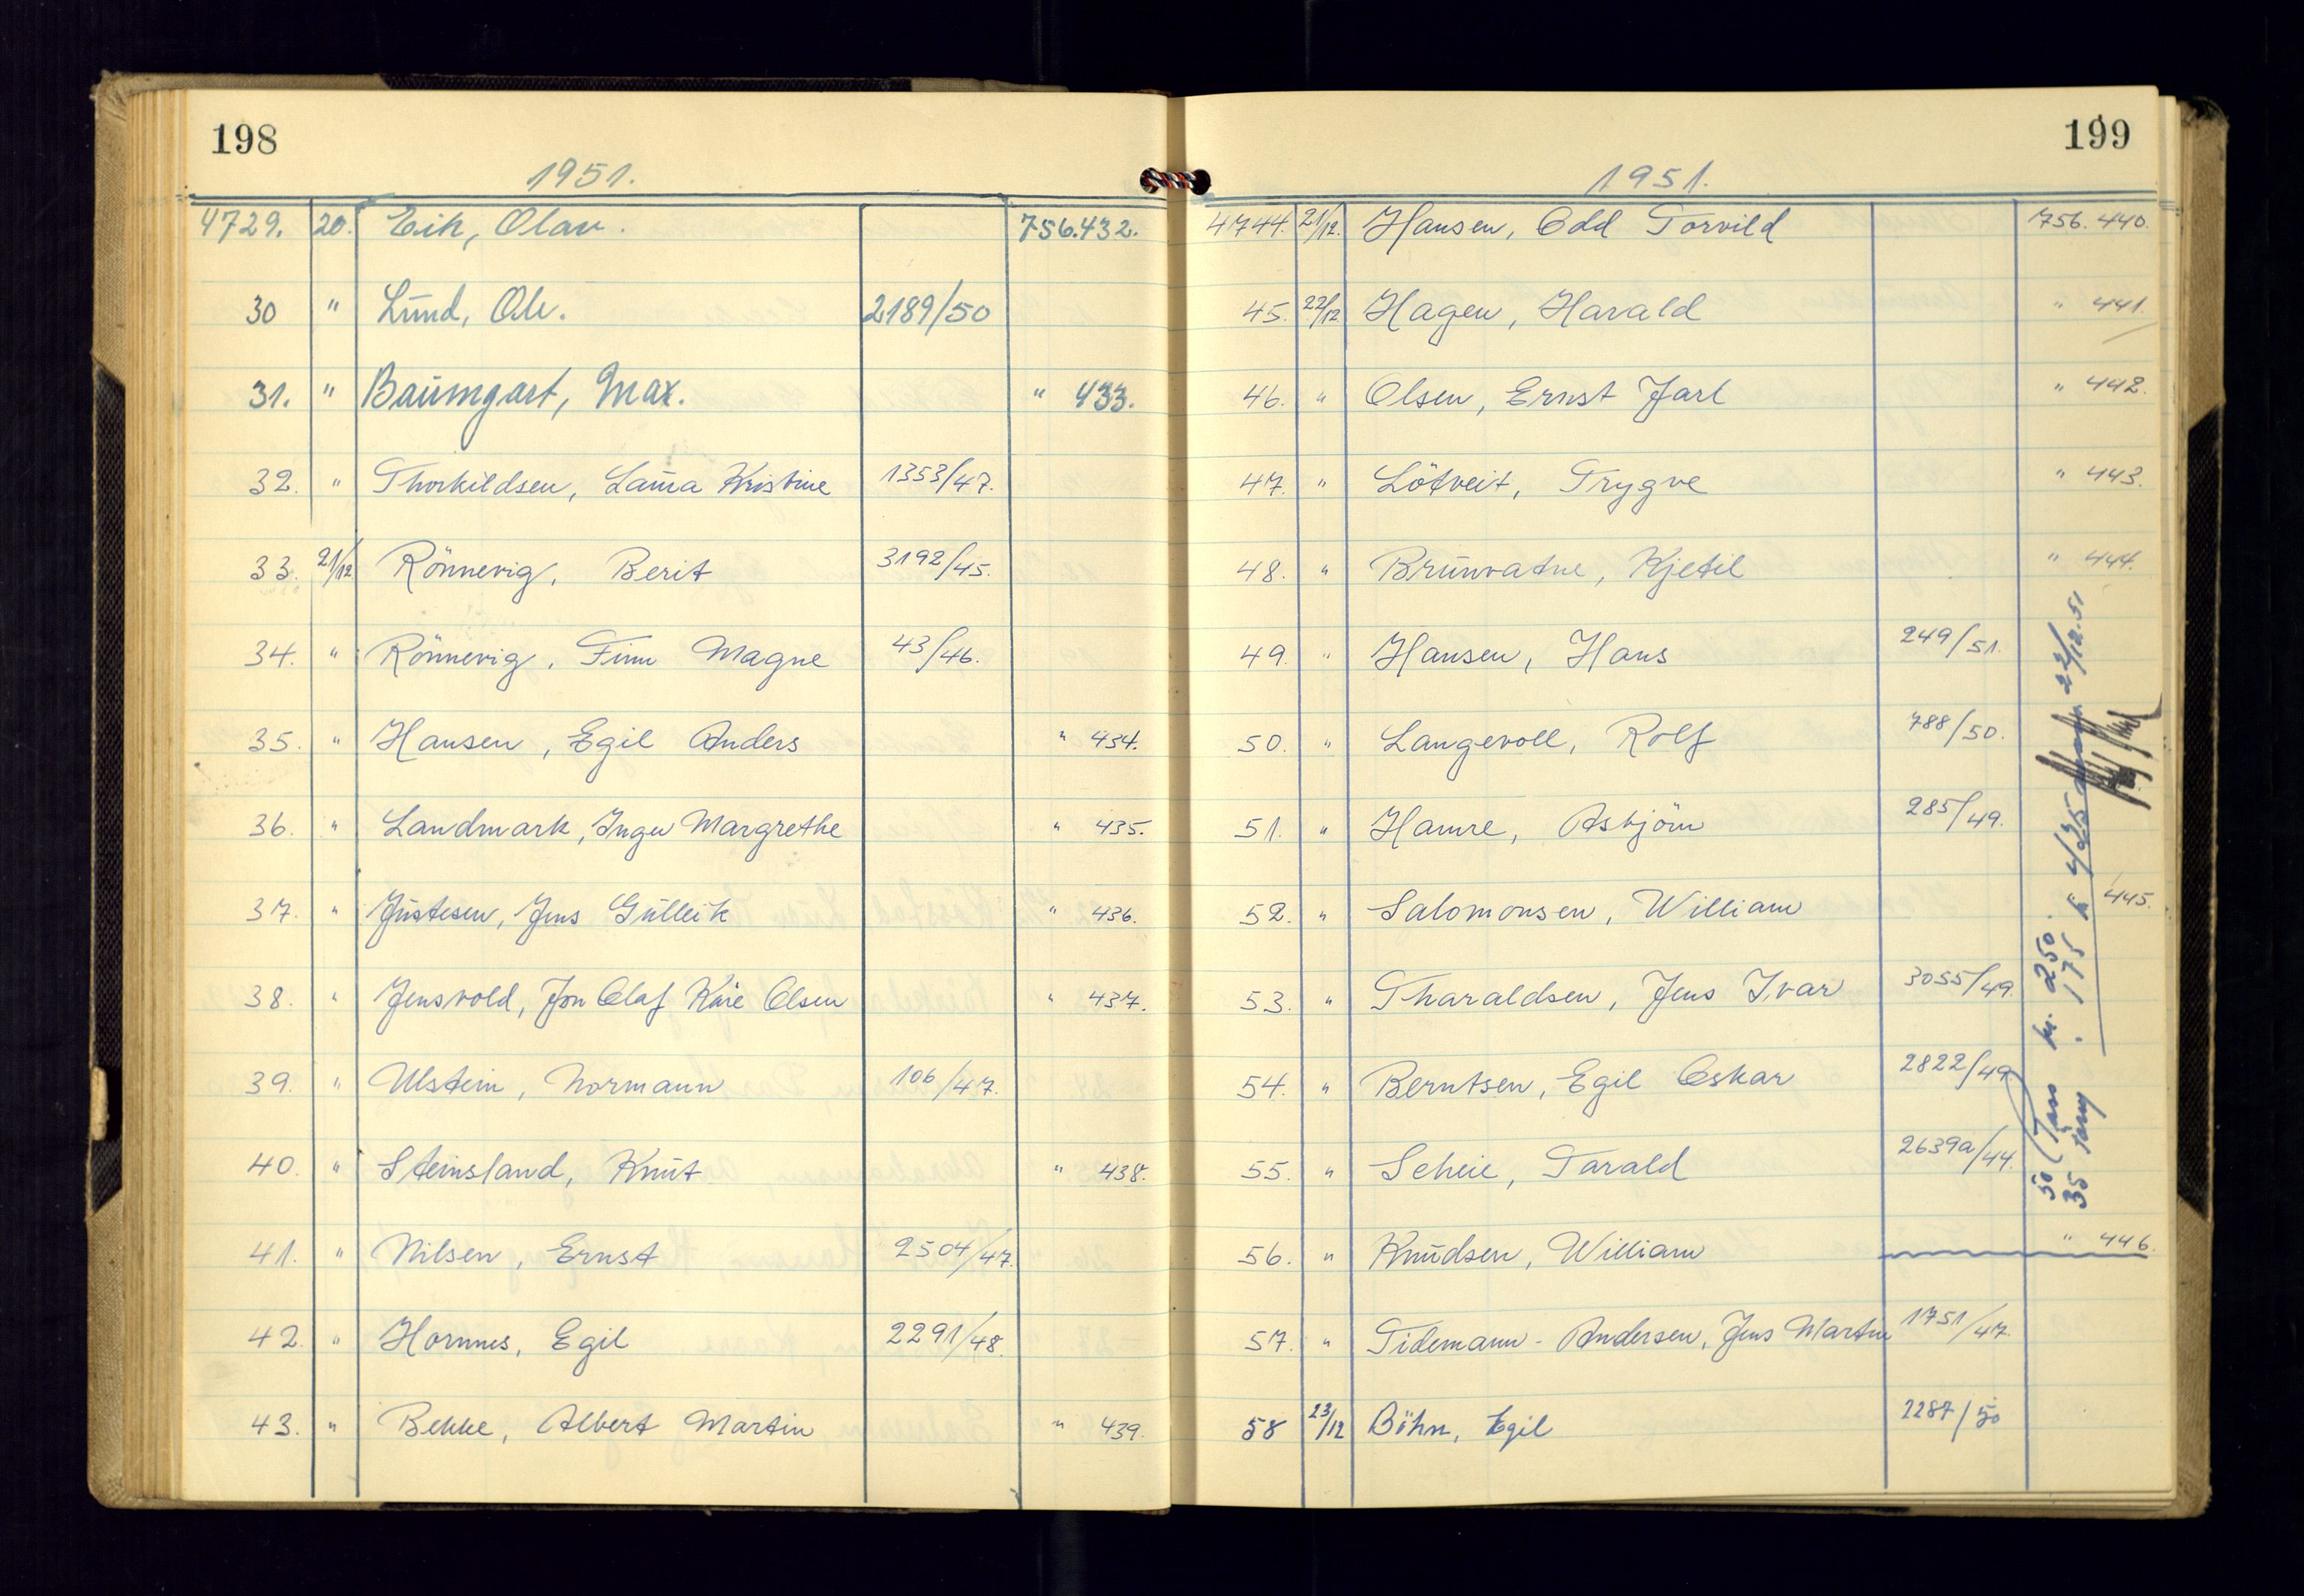 198
1951.
4729. 20. Eik, Olav. 756.432.
30 " Lund, Ole. 2189/50
31. " Baumgart, Max. " 433.
32. " Thorkildsen, Laura Kristine 1353/47.
33. 21/12 Rönnevig, Berit 3192/45.
34. " Rönnevig, Finn Magne 43/46.
35. " Hansen, Egil Anders " 434.
36. " Landmark, Inger Margrethe " 435.
37. " Justesen, Jens Gulleik " 436.
38. " Jensvold, Jon Olaf Kåre Olsen " 437.
39. " Ulstein, Normann 106/47.
40. " Steinsland, Knut " 438.
41. " Nilsen, Ernst 2504/47.
42. " Hornnes, Egil 2291/48.
43. " Bekke, Albert Martin " 439.
199
1951.
4744. 21/12. Hansen, Odd Torvild 756.440.
45. 22/12 Hagen, Harald " 441.
46. " Olsen, Ernst Jarl " 442.
47. " Lötveit, Trygve " 443.
48. " Brunvatne, Kjetil " 444.
49. " Hansen, Hans 249/51.
50. " Langevoll, Rolf 788/50.
51. " Hamre, Asbjörn 285/49.
52. " Salomonsen, William 445.
53. " Tharaldsen, Jens Ivar 3055/49.
54. " Berntsen, Egil Oskar 2822/49.
55. " Scheie, Tarald 2639a/44.
56. " Knudsen, William " 446.
57. " Tidemann-Andersen, Jens Martin 1751/47.
58 23/12 Böhn, Egil 2287/50
50 Pass kr. 250.
35 " 175 kr 425 22/12.51